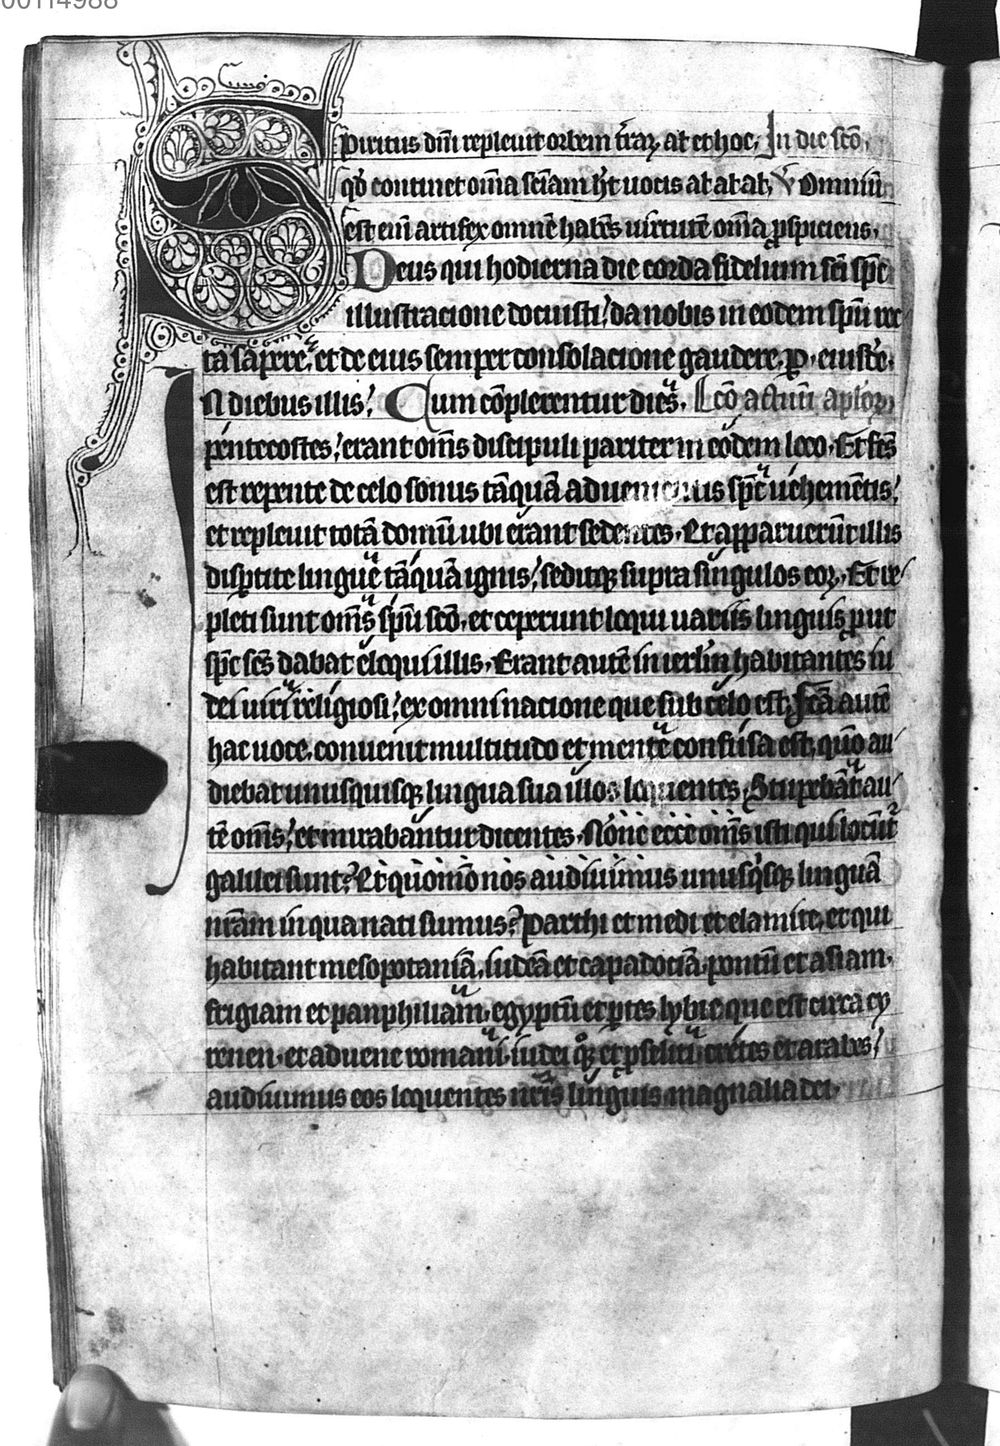 00114988
Spiritus dnī repleuit orbem t̄raꝝ at et hoc, In die sc̄o
qđ continet om̄ia sc̄iam h̄t uocis at at at, ℣ Omniū
est eni᷑ artifex omnē habēs uirtutē om̄ia ꝓspiciens.
Deus qui hodierna die corda fidelium sc̄i sp̄c
illustracione docuisti; da nobis in eodem sp̄u rec
ta sapere, et de eius semper consolacione gaudere. p̱. eiusdē.
In diebus illis; Cum cōplerentur dies. Lc̄o actuū aplōꝝ
pentecostes; erant om̄s discipuli pariter in eodem loco. Et fc̄s
est repente de celo sonus tāquā aduenientis sp̄c uehemētis;
et repleuit totā domū ubi erant sedentes. Et apparuerūt illis
disp̱tite lingue tāquā ignis; seditqꝫ supra singulos eoꝝ. Et re
pleti sunt om̄s sp̄u sc̄o, et ceperunt loqui uariis linguis ꝓut
sp̄c sc̄s dabat eloqui illis. Erant autē in ierl̄m habitantes iu
dei uiri religiosi; ex omni nacione que sub celo est. Fc̄a autē
hac uoce, conuenit multitudo et mente confusa est, qūo au
diebat unusquisqꝫ lingua sua illos loquentes. Stupebāt au
tē om̄s; et mirabantur dicentes. Nōne ecce om̄s isti qui locūt᷑
galilei sunt? Et quomōo nos audiuimus unusq̇sqꝫ linguā
nr̄am in qua nati sumus? Parthi et medi et elamite, et qui
habitant mesopotaniā, iudeā et capadociā, pontū et asiam.
frigiam et panphiliam, egyptū et p̱tes lybie que est circa cy
renen. et aduene romani. iudei qͦꝫ et ꝓseliti, cretes et arabes;
audiuimus eos loquentes nr̄is linguis magnalia dei.